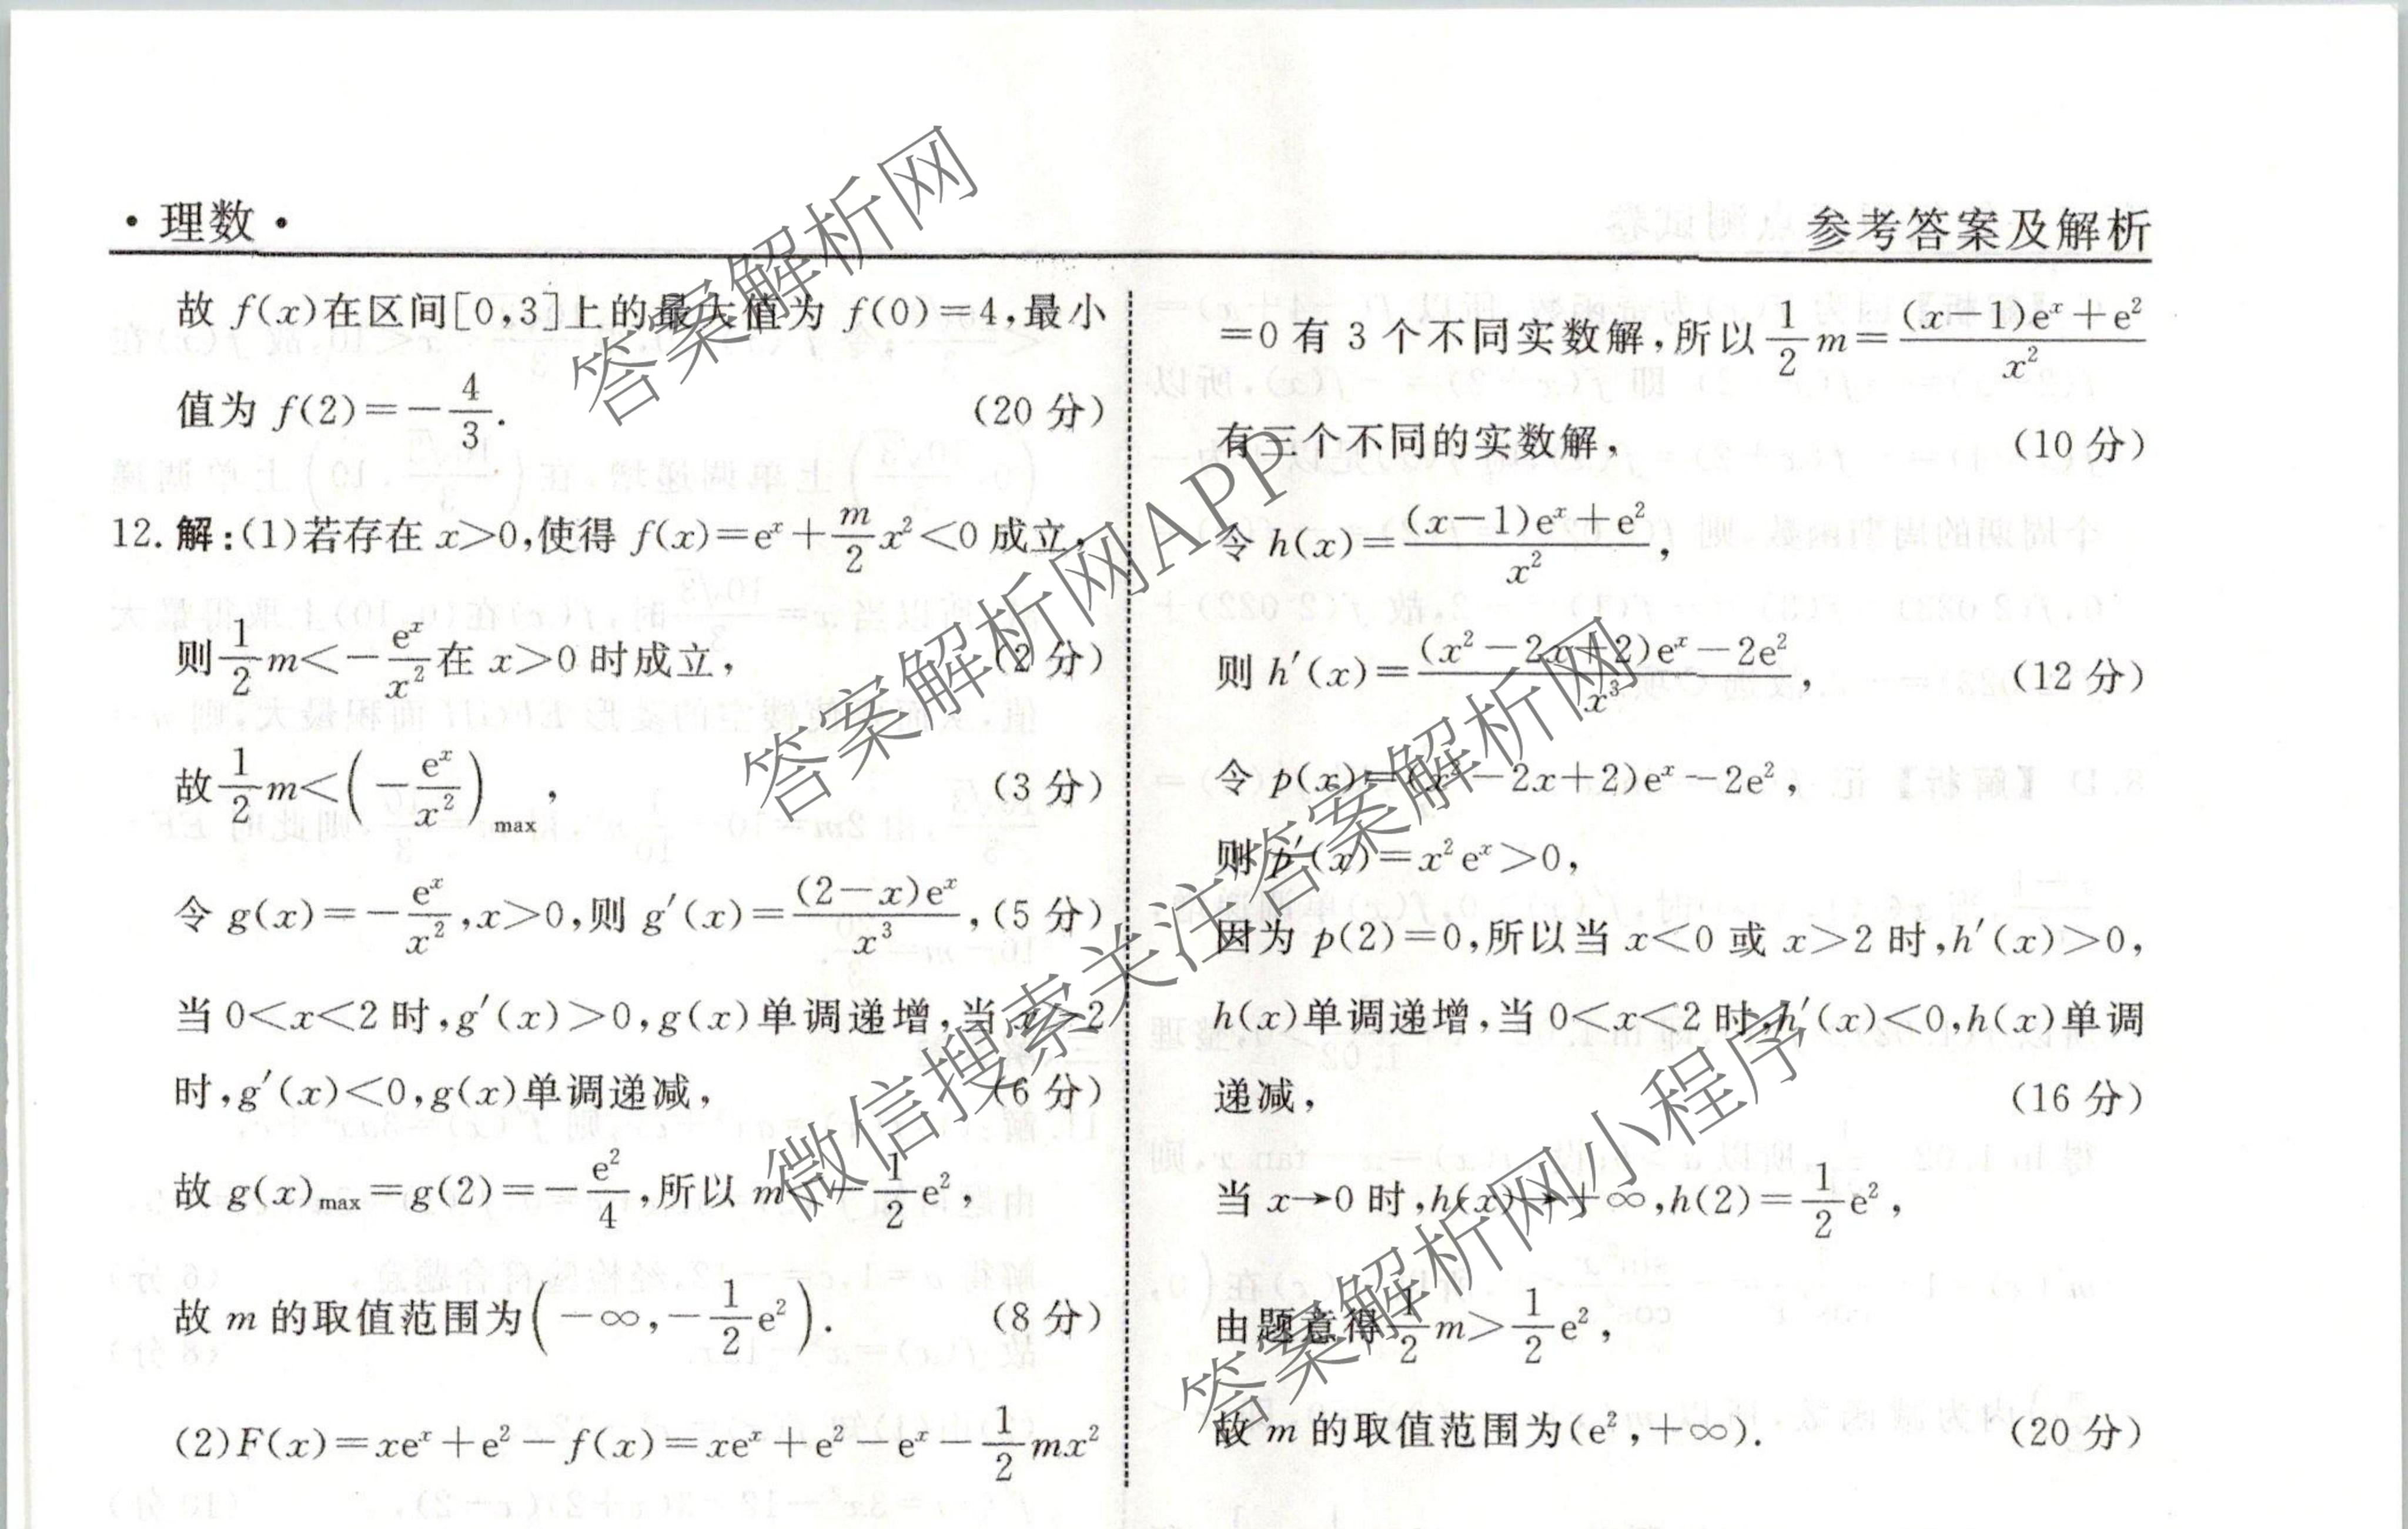 ·理数·
参考答案及解析
故 f(x)在区间[0,3]上的最大值为 f(0)=4,最小
值为 f(2)=-4/3. (20 分)
12. 解:(1)若存在 x>0,使得 f(x)=eˣ+m/2 x²<0 成立,
则 1/2 m<-eˣ/x² 在 x>0 时成立, (2 分)
故 1/2 m<(-eˣ/x²)max, (3 分)
令 g(x)=-eˣ/x²,x>0,则 g′(x)=(2-x)eˣ/x³,(5 分)
当 0<x<2 时,g′(x)>0,g(x)单调递增,当 x>2
时,g′(x)<0,g(x)单调递减, (6 分)
故 g(x)max=g(2)=-e²/4,所以 m<-1/2 e²,
故 m 的取值范围为(-∞,-1/2 e²). (8 分)
(2)F(x)=xeˣ+e²-f(x)=xeˣ+e²-eˣ-1/2 mx²
=0 有 3 个不同实数解,所以 1/2 m=((x-1)eˣ+e²)/x²
有三个不同的实数解, (10 分)
令 h(x)=((x-1)eˣ+e²)/x²,
则 h′(x)=((x²-2x+2)eˣ-2e²)/x³, (12 分)
令 p(x)=(x²-2x+2)eˣ-2e²,
则 p′(x)=x²eˣ>0,
因为 p(2)=0,所以当 x<0 或 x>2 时,h′(x)>0,
h(x)单调递增,当 0<x<2 时,h′(x)<0,h(x)单调
递减, (16 分)
当 x→0 时,h(x)→+∞,h(2)=1/2 e²,
由题意得 1/2 m>1/2 e²,
故 m 的取值范围为(e²,+∞). (20 分)
答案解析网
答案解析网APP
微信搜索关注答案解析网
答案解析网小程序